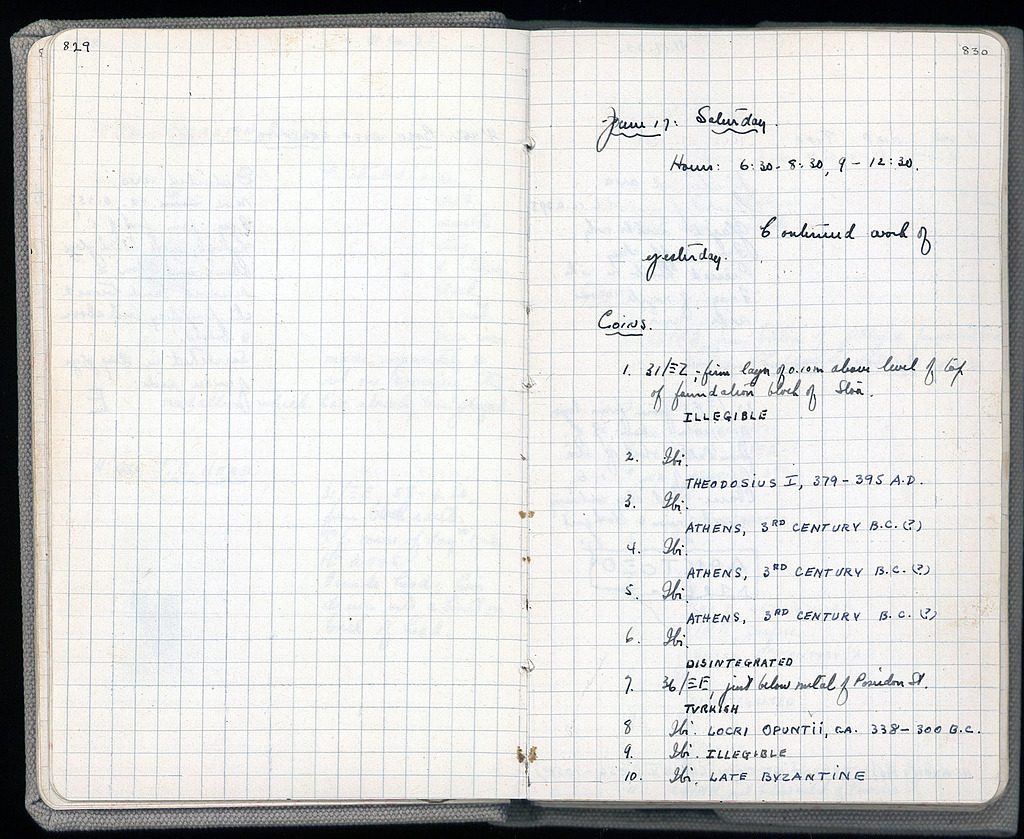 829
830
June 17: Saturday.
Hours: 6:30-8:30, 9-12:30.
Continued work of
yesterday.
Coins.
1. 31/ΞΖ; firm layer of 0.10m above level of top
of foundation block of Stoa.
ILLEGIBLE
2. Ibi.
THEODOSIUS I, 379-395 A.D.
3. Ibi.
ATHENS, 3RD CENTURY B.C. (?)
4. Ibi.
ATHENS, 3RD CENTURY B.C. (?)
5. Ibi.
ATHENS, 3RD CENTURY B.C. (?)
6. Ibi.
DISINTEGRATED
7. 36/ΞΕ, just below metal of Poseidon St.
TURKISH
8 Ibi. LOCRI OPUNTII, CA. 338-300 B.C.
9. Ibi. ILLEGIBLE
10. Ibi. LATE BYZANTINE